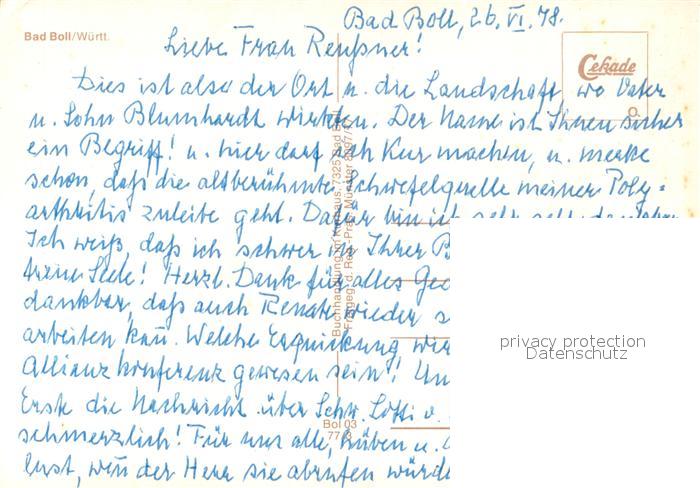 Bad Boll, 26. VI. 78.
Bad Boll/Württ.
Liebe Frau Reußner!
Cekade
Dies ist also der Ort u. die Landschaft, wo Vater
u. Sohn Blumhardt wirkten. Der Name ist Ihnen sicher
ein Begriff! u. hier darf ich Kur machen, u. merke
schon, daß die altberühmte Schwefelquelle meiner Poly-
arthritis zuleibe geht. Dafür bin ich sehr, sehr dankbar
Ich weiß, daß ich schwer in Ihrer B
treue Seele! Herzl. Dank für alles Ge
dankbar, daß auch Renate wieder s
arbeiten kañ. Welche Erquickung wer
Allianzkonferenz gewesen sein! Un
Erste die Nachricht über Schw. Lotti v.
schmerzlich! Für uns alle, hüben u.
lust, weñ der Herr sie abrufen würde
Buchhandlung im Kurhaus, 7325 Bad Boll
Freigeg. d. Reg. Präs. Münster
Bol 03
privacy protection
Datenschutz